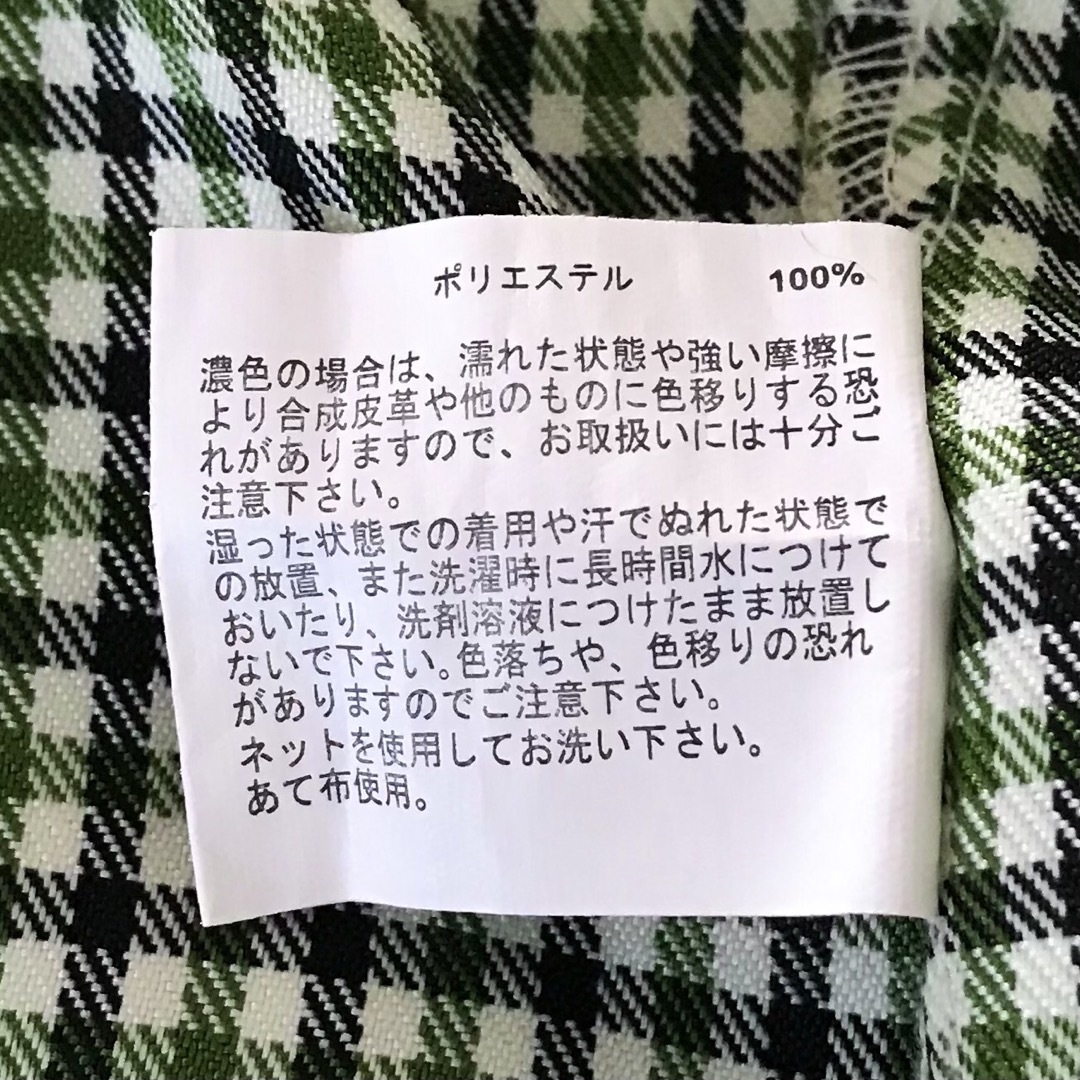 ポリエステル 100%
濃色の場合は、濡れた状態や強い摩擦に
より合成皮革や他のものに色移りする恐
れがありますので、お取扱いには十分ご
注意下さい。
湿った状態での着用や汗でぬれた状態で
の放置、また洗濯時に長時間水につけて
おいたり、洗剤溶液につけたまま放置し
ないで下さい。色落ちや、色移りの恐れ
がありますのでご注意下さい。
ネットを使用してお洗い下さい。
あて布使用。